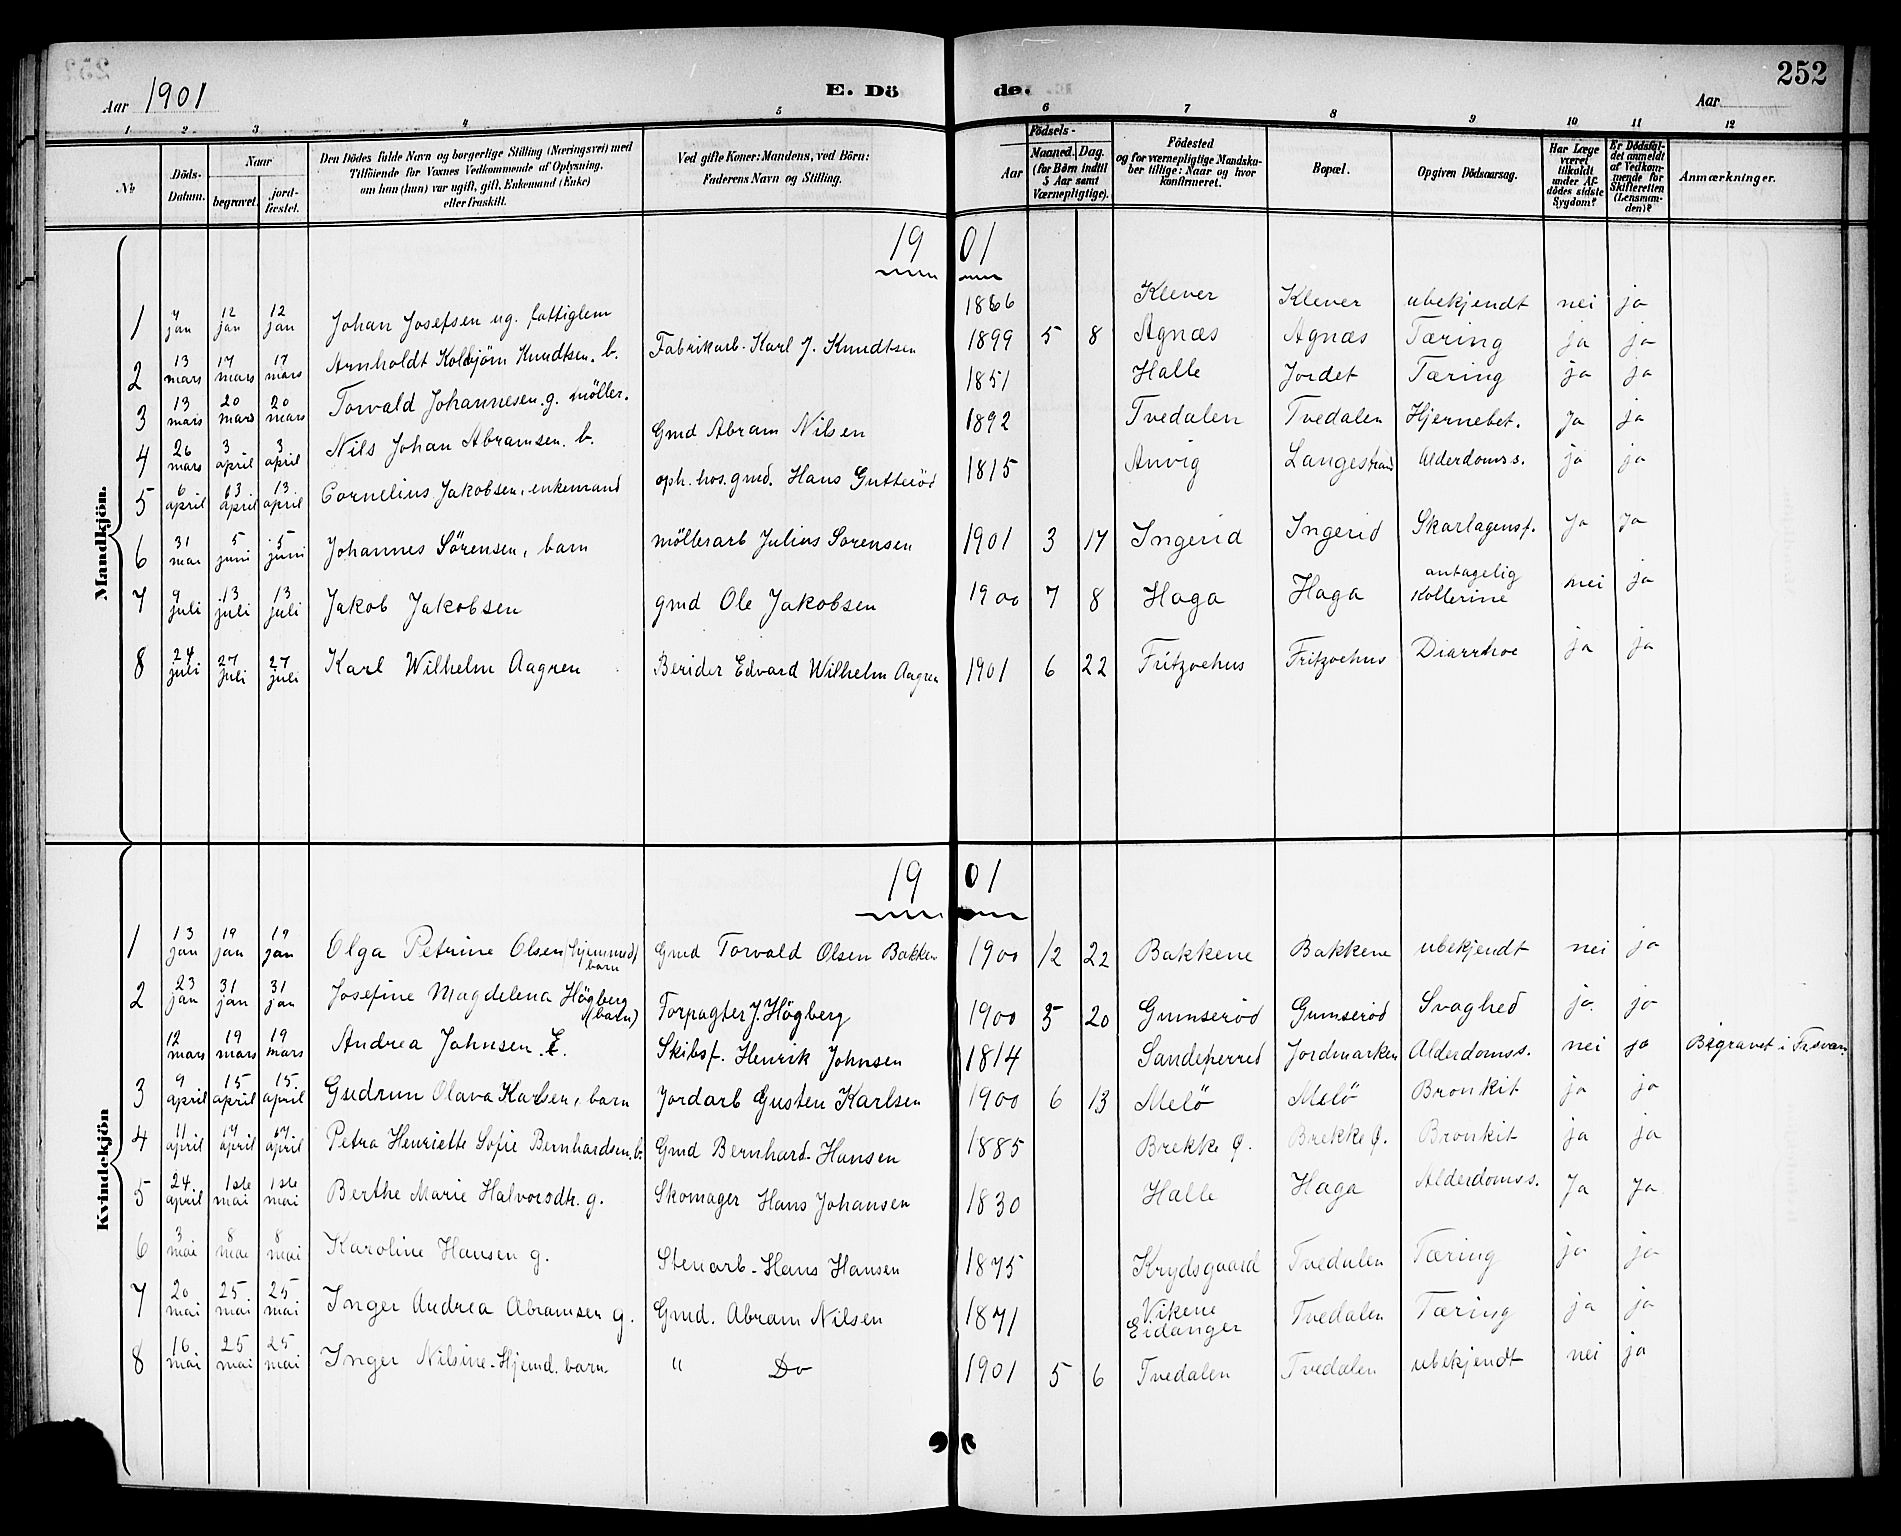 252
Aar 1901
E. Dö de.
Aar
1 2 3 4 5 6 7 8 9 10 11 12
No
Döds-Datum.
Naar
begravet.
jord-fæstet.
Den Dödes fulde Navn og borgerlige Stilling (Næringsvei) med
Tilföiende for Voxnes Vedkommende af Oplysning.
om han (hun) var ugift, gift, Enkemand (Enke)
eller fraskilt.
Ved gifte Koner: Mandens, ved Börn:
Faderens Navn og Stilling.
Födsels-
Aar
Maaned. Dag.
(for Börn indtil
5 Aar samt
Værnepligtige).
Födested
og for værnepligtige Mandsku-
ber tillige: Naar og hvor
konfirmeret.
Bopæl.
Opgiven Dödsaarsag.
Har Læge
været
tilkaldt
under Af-
dödes sidste
Sygdom?
Er Dödsfal-
det anmeldt
af Vedkom-
mende for
Skifteretten
(Lensman-
den)?
Anmærkninger.
Mandkjön.
19 01
1 4 jan 12 jan 12 jan Johan Josefsen ug. fattiglem 1866 Klever Klever ubekjendt nei ja
2 13 mars 17 mars 17 mars Arnholdt Kolbjörn Knudtsen. b. Fabrikarb. Karl J. Knudtsen 1899 5 8 Agnæs Agnæs Tæring ja ja
3 13 mars 20 mars 20 mars Torvald Johannesen. g. möller. 1851 Halle Jordet Tæring ja ja
4 26 mars 3 april 3 april Nils Johan Abramsen. b. Gmd Abram Nilsen 1892 Tvedalen Tvedalen Hjernebet. ja ja
5 6 april 13 april 13 april Cornelius Jakobsen, enkemand oph. hos. gmd. Hans Gutteröd 1815 Anvig Langestrand Alderdomss. ja ja
6 31 mai 5 juni 5 juni Johannes Sörensen, barn möllerarb Julius Sorensen 1901 3 17 Ingerid Ingerid Skarlagensf. ja ja
7 9 juli 13 juli 13 juli Jakob Jakobsen gmd Ole Jakobsen 1900 7 8 Haga Haga antagelig Kollerine nei ja
8 24 juli 27 juli 27 juli Karl Wilhelm Aagren Berider Edvard Wilhelm Aagren 1901 6 22 Fritzoehus Fritzoehus Diarrhoe ja ja
Kvindekjön
19 01
1 13 jan 19 jan 19 jan Olga Petrine Olsen (hjemmed) barn Gmd Torvald Olsen Bakken 1900 12 22 Bakkene Bakkene ubekjendt nei ja
2 23 jan 31 jan 31 jan Josefine Magdelena Högberg (barn) Forpagter J. Högberg 1900 5 20 Gumseröd Gumseröd Svaghed ja. ja
12 mars 19 mars 19 mars Andrea Johnsen. E. Skibsf. Henrik Johnsen 1814 Sandeherred Jordmarken Alderdomss. nei ja Begravet i
3 9 april 15 april 15 april Gudrun Olava Karlsen, barn Jordarb Gusten Karlsen 1900 6 13 Melö Melö Bronkit ja ja
4 11 april 17 april 17 april Petra Henriette Sofie Bernhardsen. b. Gmd Bernhard Hansen 1885 Brekke Ø. Brekke Ø. Bronkit ja ja
5 24 april 1ste mai 1ste mai Berthe Marie Halvorsdtr. g. Skomager Hans Johansen 1830 Halle Haga Alderdomss. ja ja
6 3 mai 8 mai 8 mai Karoline Hansen g. Stenarb. Hans Hansen 1875 Krydsgaard Tvedalen Tæring ja ja
7 20 mai 25 mai 25 mai Inger Andrea Abramsen g. Gmd. Abram Nilsen 1871 Vikene Eidanger Tvedalen Tæring ja ja
8 16 mai 25 mai 25 mai Inger Nilsine. Hjemd. barn " Do 1901 5 6 Tvedalen Tvedalen ubekjendt nei ja